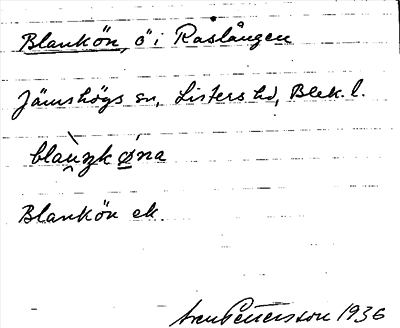 Blankön, ö i Raslången
Jämshögs sn, Listers hd, Blek. l.
blaŋk øna
Blankön ek.
Pettersson 1936